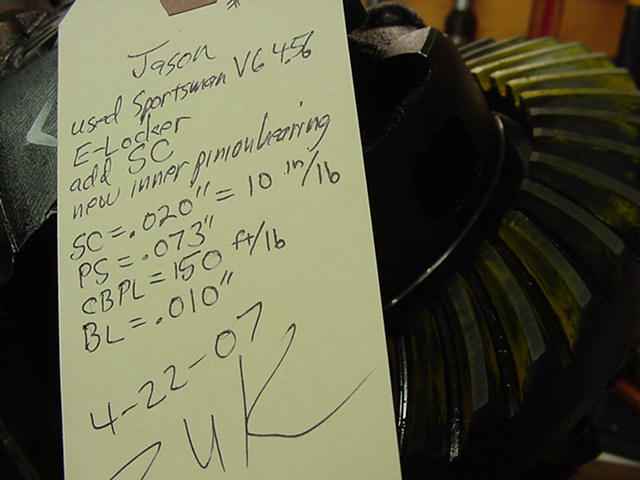 Jason
used Sportsman V6 4.56
E-Locker
add SC
new inner pinion bearing
SC = .020" = 10 in/lb
PS = .073"
CBPL = 150 ft/lb
BL = .010"
4-22-07
ZUK